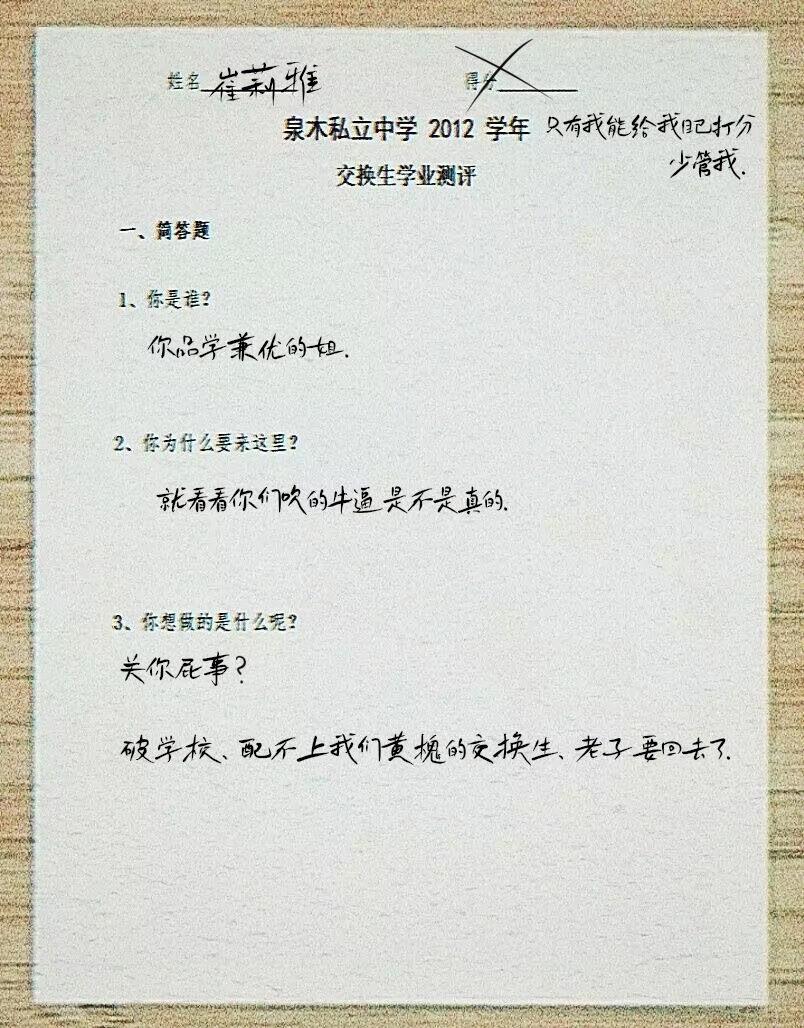 姓名 崔莉雅 得分
泉木私立中学 2012 学年 只有我能给我自己打分
少管我.
交换生学业测评
一、简答题
1、你是谁？
你品学兼优的姐.
2、你为什么要来这里？
就看看你们吹的牛逼是不是真的.
3、你想做的是什么呢？
关你屁事？
破学校、配不上我们黄槐的交换生、老子要回去了.